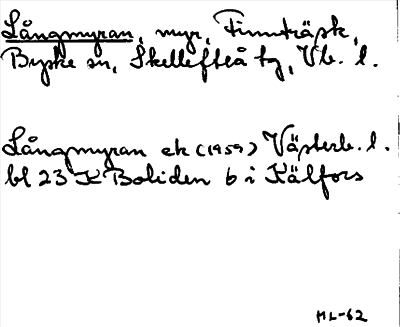 Långmyran, myr, Finnträsk,
Byske sn, Skellefteå tg, Vb. l.
Långmyran ek (1959) Västerb. l.
bl 23 K Boliden 6 i Kälfors
HL-62